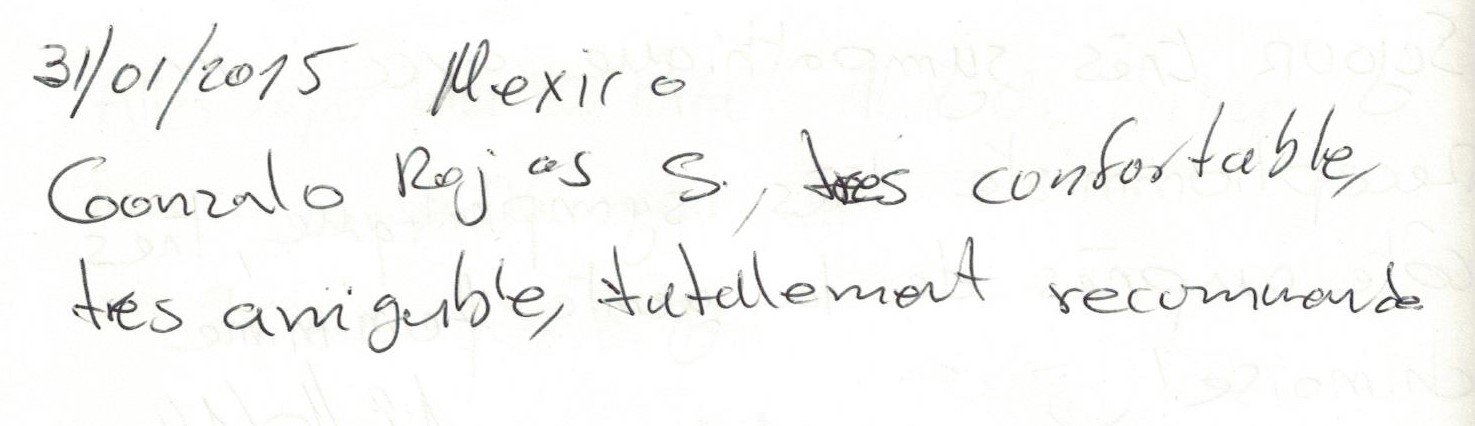 31/01/2015 Mexico
Gonzalo Rojas S., tres confortable,
tres amigable, tutallement recommande